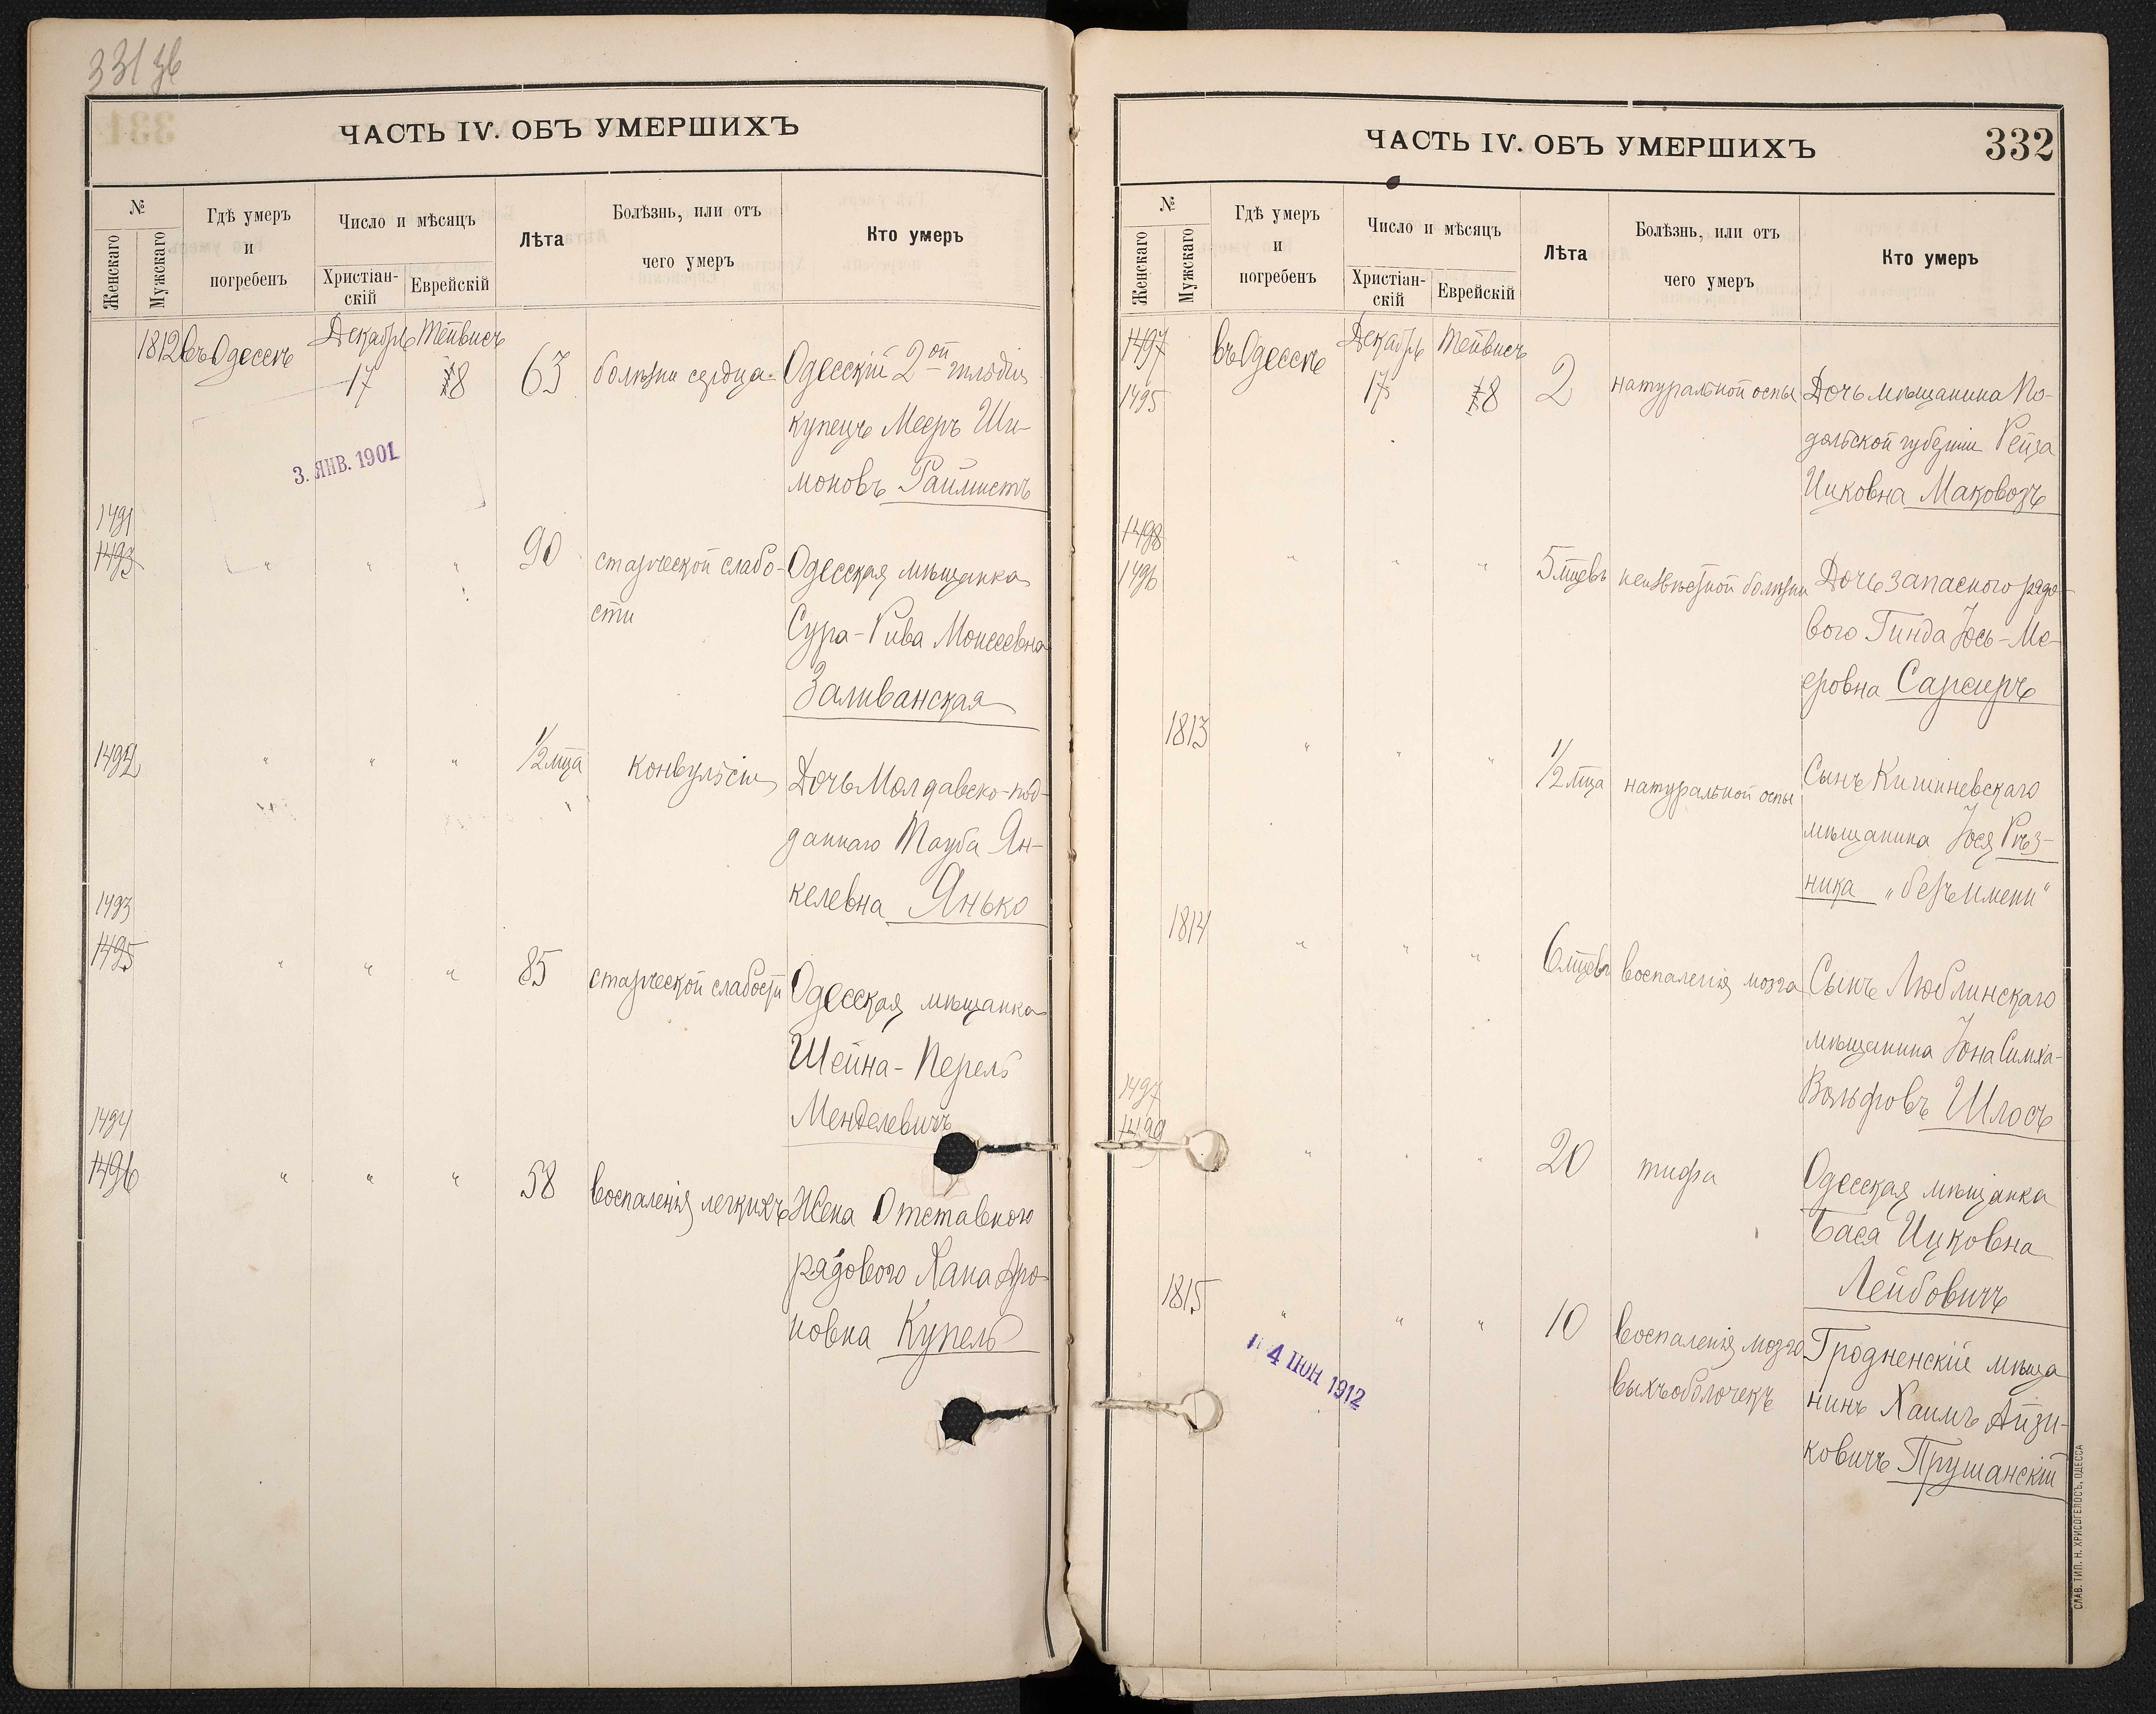 331 зв
ЧАСТЬ IV. ОБЪ УМЕРШИХЪ
№
Женскаго
Мужскаго
Гдѣ умеръ
и
погребенъ
Число и мѣсяцъ
Христіан-
скій
Еврейскій
Лѣта
Болѣзнь, или отъ
чего умеръ
Кто умеръ
1812 въ Одессѣ Декабрь Тейвисъ
17 8 63 болѣзни сердца Одесскій 2ой гильдіи
купецъ Мееръ Ши-
моновъ Раймистъ
3. ЯНВ. 1901
1491
1493 " " " 90 старческой слабо- Одесская мѣщанка
сти
Сура-Рива Моисеевна
Заливанская
1492 " " " 1/2 мца конвульсіи Дочь Молдавско-под-
даннаго Тауба Ян-
келевна Янько
1493
1495 " " " 85 старческой слабости Одесская мѣщанка
Шейна-Перель
Менделевичъ
1494
1496 " " " 58 воспаленія легкихъ Жена Отставного
рядового Хана Аро-
новна Купель
ЧАСТЬ IV. ОБЪ УМЕРШИХЪ
332
№
Женскаго
Мужскаго
Гдѣ умеръ
и
погребенъ
Число и мѣсяцъ
Христіан-
скій
Еврейскій
Лѣта
Болѣзнь, или отъ
чего умеръ
Кто умеръ
1497 въ Одессѣ Декабрь Тейвисъ
1495 17 8 2 натуральной оспы Дочь мѣщанина По-
дольской губерніи Рейза
Ицковна Маковозъ
1498
1496 " " " 5 мцевъ неизвѣстной болѣзни Дочь запасного рядо-
вого Гинда Іось-Ме-
еровна
1813 " " " 1/2 мца натуральной оспы Сынъ Кишиневскаго
мѣщанина Іося Рѣз-
ника „безъ имени"
1814 " " " 6 мцевъ воспаленія мозга Сынъ Люблинскаго
мѣщанина Іона Симха-
Вольфовъ Шлосъ
1497
1499 " " " 20 тифа Одесская мѣщанка
Бася Ицковна
Лейбовичъ
1815 " " " 10 воспаленія мозго Гродненскій мѣща
выхъ оболочекъ нинъ Хаимъ Айзи-
ковичъ Прушанскій
4 ІЮН 1912
СЛАВ. ТИП. Н. ХРИСОГЕЛОСЪ, ОДЕССА